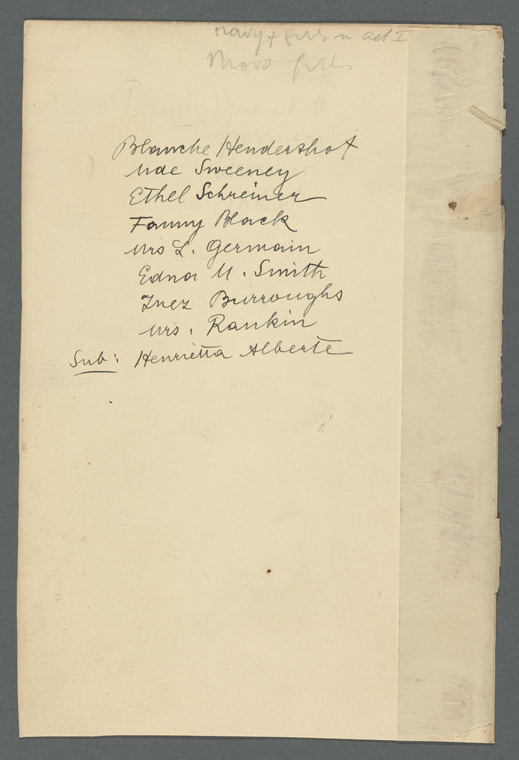 girls in act I
girls
Blanche Hendershot
Mde Sweeney
Ethel Schreiner
Fanny Black
Mrs L. Germain
Edna M. Smith
Inez Burroughs
Mrs. Rankin
Sub: Henrietta Alberte